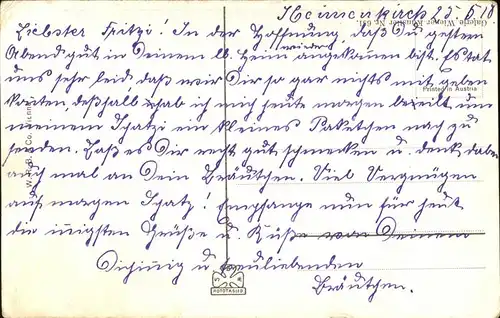 Heimenkirch 25. 6. 18
Liebster Fritzi! In der Hoffnung, daß Du gestern
Abend gut in Deinem lb. Heim wieder angekommen bist. Es tat
uns sehr leid, daß wir Dir so gar nichts mit geben
konnten, deshalb hab ich mich heute morgen beeilt, dem
meinem Schatzi ein kleines Paketchen nach zu
senden. Laß es Dir recht gut schmecken u. denk dabei
auch mal an Dein Bräutchen. Viel Vergnügen
auf morgen Schatz! Empfange nun für heut
die innigsten Grüße u. Küße von Deinem
Dich innig u. treuliebenden
Bräutchen.
Galerie Wiener Künstler Nr.
Printed in Austria
W. R. B. & Co.
ROTOTASIG